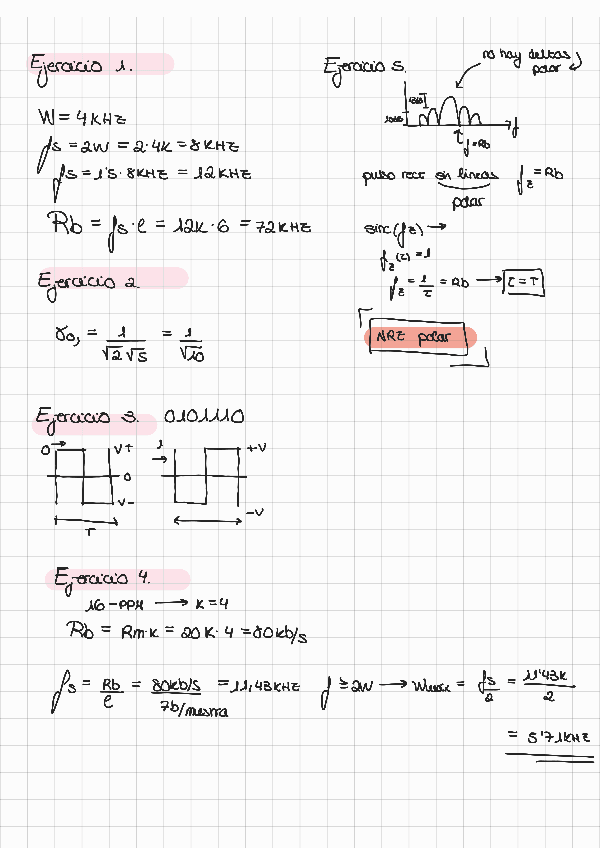 Ejercicio 1.
W = 4 KHz
fs = 2W = 2·4K = 8KHz
fs = 1'5·8KHz = 12KHz
Rb = fs·l = 12K·6 = 72KHz
Ejercicio 2.
γ0, = 1/√2√5 = 1/√10
Ejercicio 3. 0101110
0 → V+ 0 V-
T
1 → +V -V
Ejercicio 4.
16-PPM → K=4
Rb = Rm·K = 20K·4 = 80Kb/s
fs = Rb/l = 80Kb/s / 7b/mesma = 11,43KHz f ≥ 2W → Wmax = fs/2 = 11'43K/2
= 5'71KHz
Ejercicio 5.
no hay deltas
polar
f
f=Rb
pulso recr sin lineas fz = Rb
polar
sinc(fz) →
fz(τ) = 1
fz = 1/τ = Rb → τ=T
NRZ polar